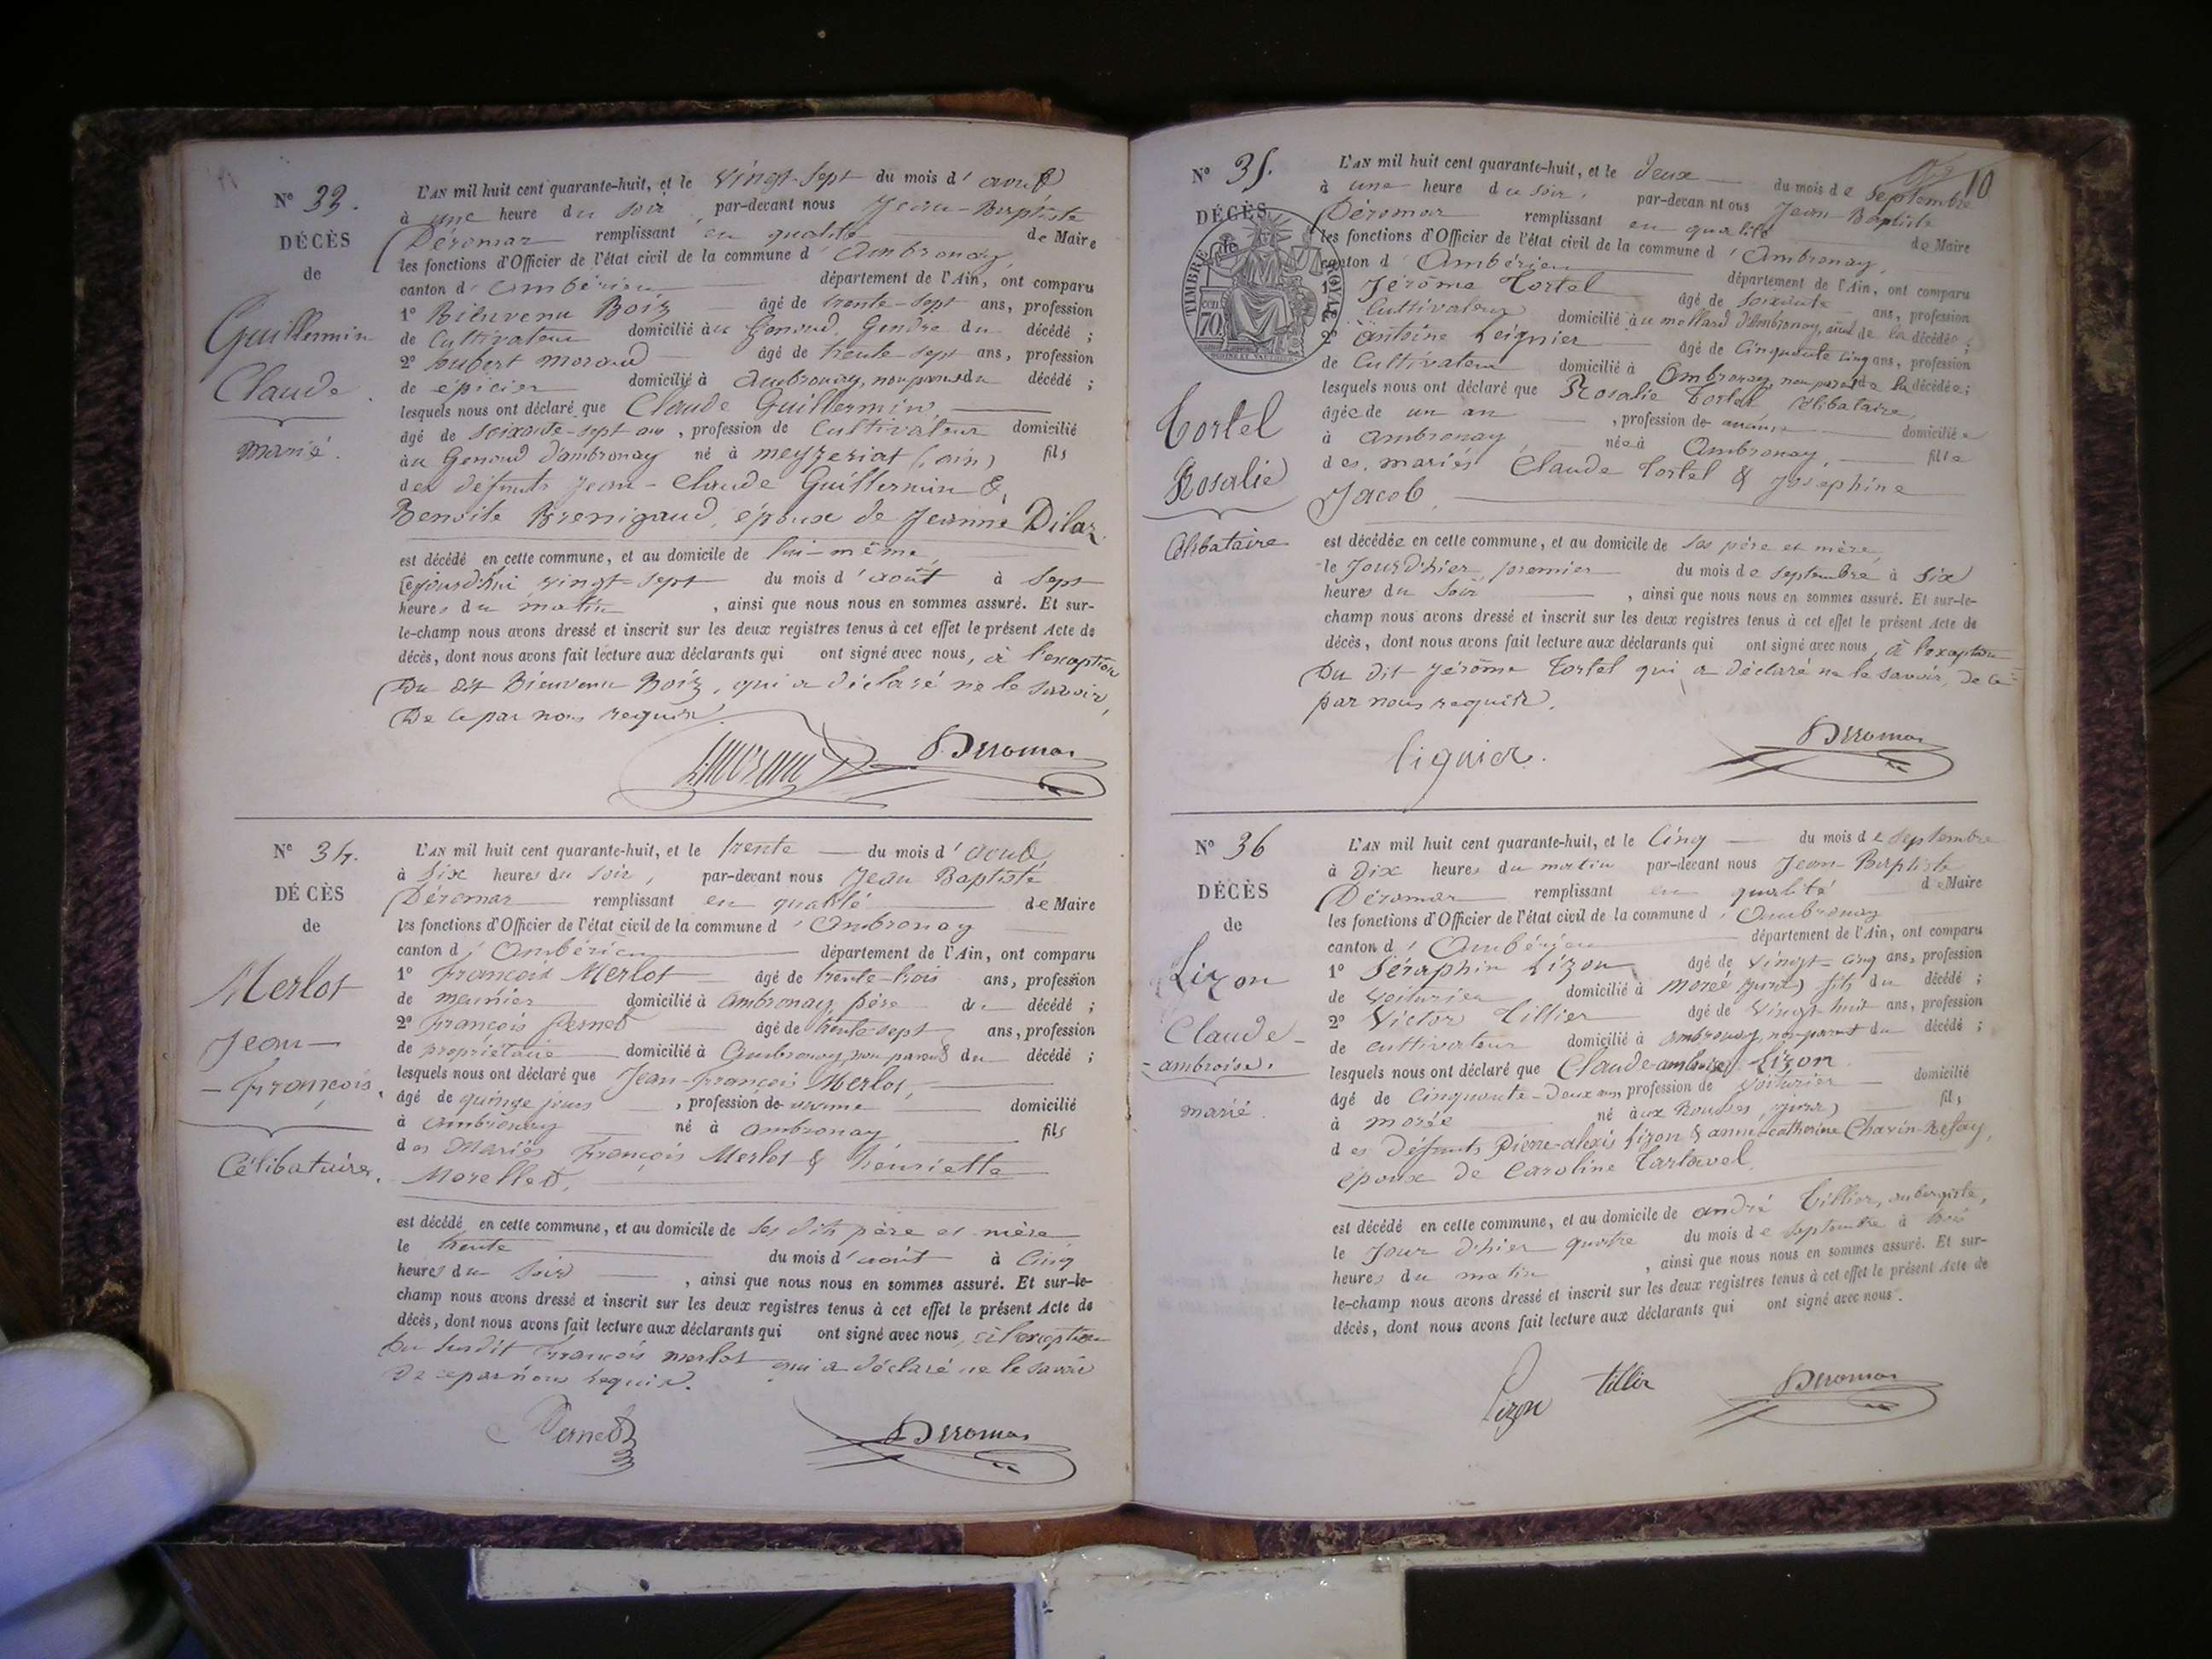 N° 33.
DÉCÈS
de
Guillermin
Claude
marié.
L'AN mil huit cent quarante-huit, et le vingt-sept du mois d'août
à une heure du soir par-devant nous Jean-Baptiste
Déromas remplissant en qualité de Maire
les fonctions d'Officier de l'état civil de la commune d'Ambronay,
canton d'Ambérieu département de l'Ain, ont comparu
1° Bienvenu Boiz âgé de trente-sept ans, profession
de Cultivateur domicilié au Genoud, Gendre du décédé ;
2° hubert morand âgé de trente-sept ans, profession
de épicier domicilié à Ambronay, non parent du décédé ;
lesquels nous ont déclaré que Claude Guillermin,
âgé de soixante-sept ans, profession de Cultivateur domicilié
au Genoud d'ambronay né à meyzeriat (ain) fils
des défunts Jean-Claude Guillermin &
Benoite Brenigaud, époux de Jeanne Dilaz
est décédé en cette commune, et au domicile de lui-même,
cejourd'hui vingt-sept du mois d'août à Sept
heures du matin, ainsi que nous nous en sommes assuré. Et sur-
le-champ nous avons dressé et inscrit sur les deux registres tenus à cet effet le présent Acte de
décès, dont nous avons fait lecture aux déclarants qui ont signé avec nous, à l'exception
Du dit Bienvenu Boiz, qui a déclaré ne le savoir,
De ce par nous requis.
Déromas
N° 34.
DÉCÈS
de
Merlot
Jean-
-François.
Célibataire.
L'AN mil huit cent quarante-huit, et le trente du mois d'août,
à Six heures du soir, par-devant nous Jean Baptiste
Déromas remplissant en qualité de Maire
les fonctions d'Officier de l'état civil de la commune d'Ambronay
canton d'Ambérieu département de l'Ain, ont comparu
1° François Merlot âgé de trente-trois ans, profession
de meunier domicilié à Ambronay, père du décédé ;
2° François Pernet âgé de trente-sept ans, profession
de propriétaire domicilié à Ambronay, non parent du décédé ;
lesquels nous ont déclaré que Jean-François Merlot,
âgé de quinze jours, profession de aucune domicilié
à Ambronay né à ambronay, fils
des Mariés François Merlot & henriette
Morellet,
est décédé en cette commune, et au domicile de ses dits père et mère
le trente du mois d'août à Cinq
heures du soir, ainsi que nous nous en sommes assuré. Et sur-le-
champ nous avons dressé et inscrit sur les deux registres tenus à cet effet le présent Acte de
décès, dont nous avons fait lecture aux déclarants qui ont signé avec nous, à l'exception
Du susdit François merlot qui a déclaré ne le savoir
De ce par nous requis.
Pernet Déromas
10
N° 35.
DÉCÈS
de
TIMBRE ROYAL
70
Tortel
Rosalie
Célibataire
L'AN mil huit cent quarante-huit, et le deux du mois de Septembre
à une heure du soir, par-devan nt ous Jean-Baptiste
Déromas remplissant en qualité de Maire
les fonctions d'Officier de l'état civil de la commune d'Ambronay,
canton d'Ambérieu département de l'Ain, ont comparu
1° Jérôme Tortel âgé de soixante ans, profession
Cultivateur domicilié au mollard d'Ambronay, aïeul de la décédée ;
2° Antoine Leignier âgé de Cinquante cinq ans, profession
de Cultivateur domicilié à Ambronay, non parent de la décédée ;
lesquels nous ont déclaré que Rosalie Tortel, Célibataire,
âgée de un an, profession de aucune domiciliée
à Ambronay, née à Ambronay, fille
des mariés Claude Tortel & Josephine
Jacob,
est décédée en cette commune, et au domicile de ses père et mère,
le Jour d'hier, premier du mois de Septembre à Six
heures du Soir, ainsi que nous nous en sommes assuré. Et sur-le-
champ nous avons dressé et inscrit sur les deux registres tenus à cet effet le présent Acte de
décès, dont nous avons fait lecture aux déclarants qui ont signé avec nous, à l'exception
Du dit Jérôme Tortel qui a déclaré ne le savoir, de ce
par nous requis.
liguier. Déromas
N° 36
DÉCÈS
de
Lizon
Claude-
-ambroise.
marié.
L'AN mil huit cent quarante-huit, et le Cinq du mois de Septembre
à Dix heures du matin par-devant nous Jean-Baptiste
Déromas remplissant en qualité de Maire
les fonctions d'Officier de l'état civil de la commune d'Ambronay
canton d'Ambérieu département de l'Ain, ont comparu
1° Séraphin Lizon âgé de vingt-cinq ans, profession
de voiturier domicilié à Morée (jura) fils du décédé ;
2° Victor Tillier âgé de Vingt huit ans, profession
de cultivateur domicilié à ambronay, non parent du décédé ;
lesquels nous ont déclaré que Claude-ambroise Lizon
âgé de Cinquante-Deux ans, profession de Voiturier domicilié
à morée né aux Rousses, (jura) fils
des Défunts Pierre-alexis Lizon & anne-catherine Chavin-Refay,
époux de Caroline Tarlavel,
est décédé en cette commune, et au domicile de andré Tillier, aubergiste,
le Jour d'hier quatre du mois de septembre à trois
heures du matin, ainsi que nous nous en sommes assuré. Et sur-
le-champ nous avons dressé et inscrit sur les deux registres tenus à cet effet le présent Acte de
décès, dont nous avons fait lecture aux déclarants qui ont signé avec nous.
Lizon tillier Déromas